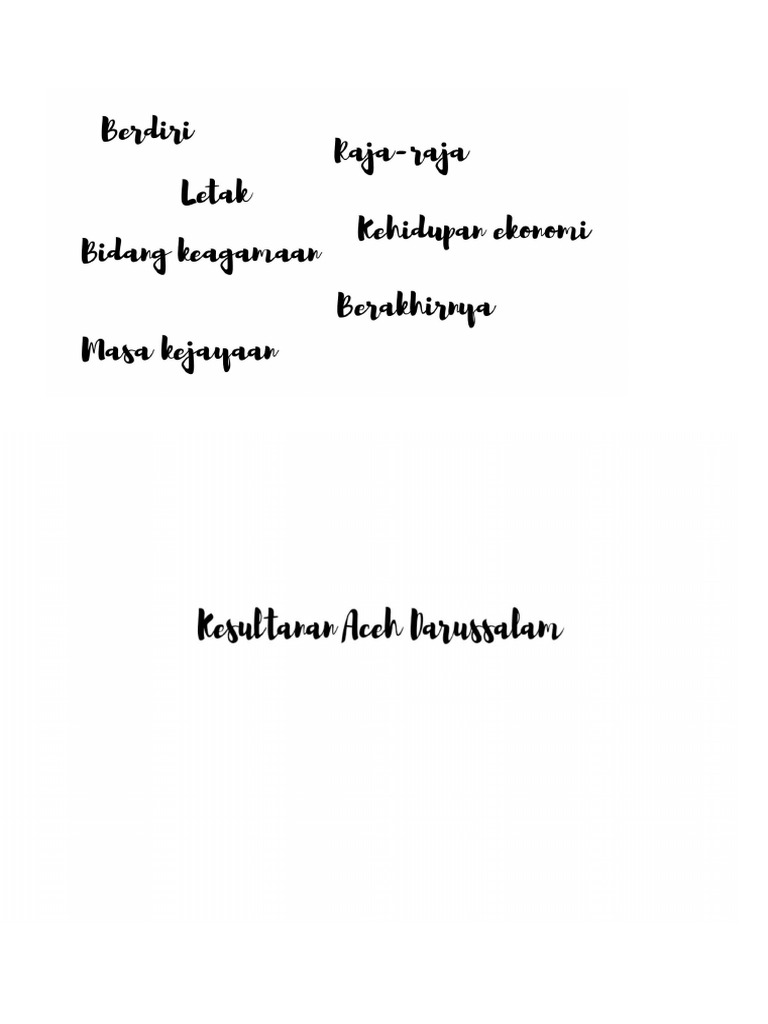 Berdiri
Raja-raja
Letak
Kehidupan ekonomi
Bidang keagamaan
Berakhirnya
Masa kejayaan
Kesultanan Aceh Darussalam